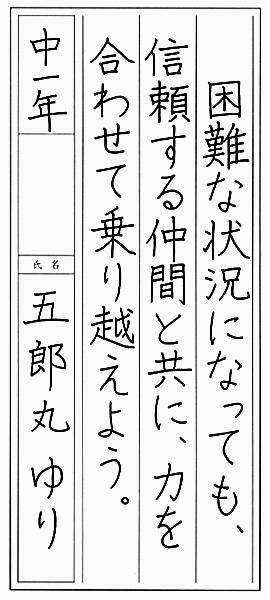 困難な状況になっても、
信頼する仲間と共に、力を
合わせて乗り越えよう。
中一年
氏名
五郎丸ゆり